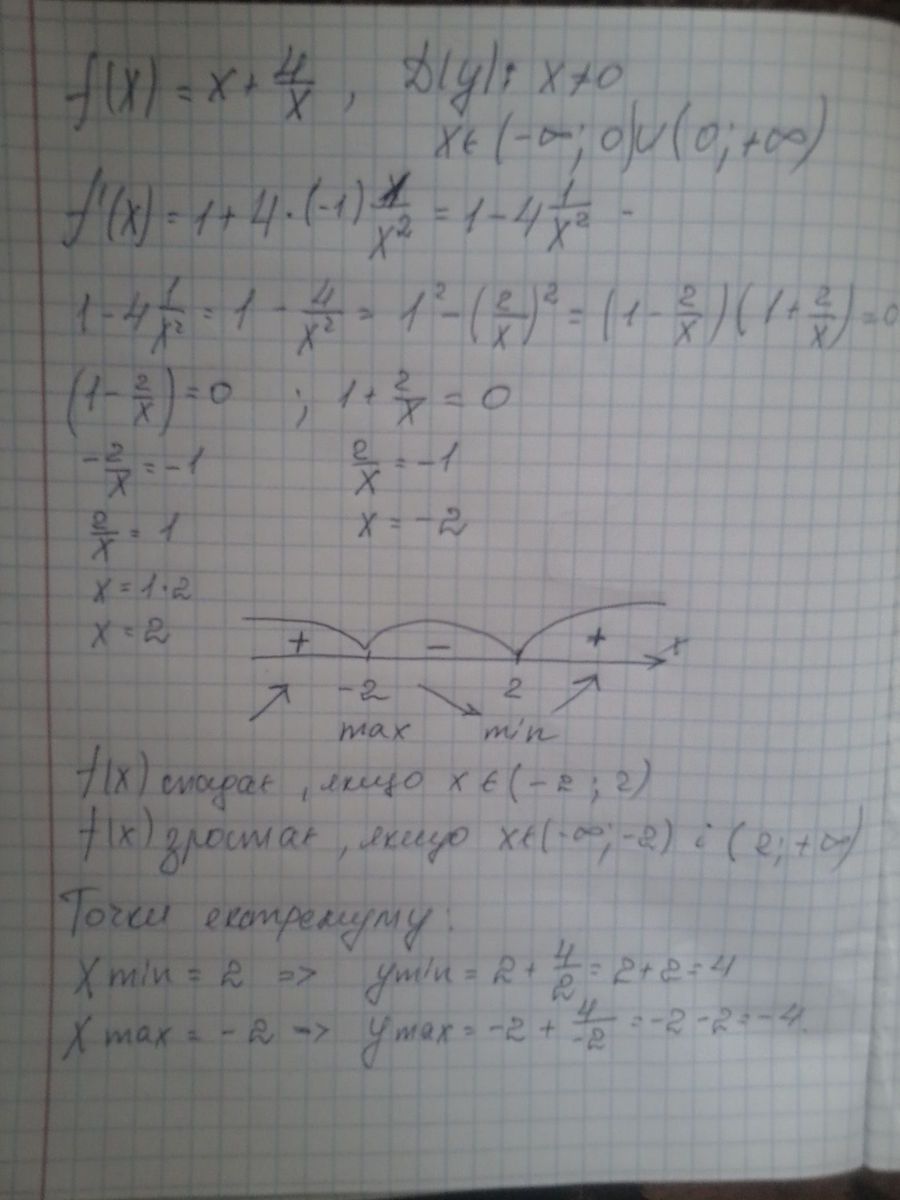 f(x) = x + 4/x , D(y): x ≠ 0
x ∈ (-∞; 0) ∪ (0; +∞)
f'(x) = 1 + 4 · (-1) 1/x² = 1 - 4 1/x² -
1 - 4 1/x² = 1 - 4/x² = 1² - (2/x)² = (1 - 2/x)(1 + 2/x) = 0
(1 - 2/x) = 0 ; 1 + 2/x = 0
-2/x = -1 2/x = -1
2/x = 1 x = -2
x = 1·2
x = 2
+ - + x
-2 2
max min
f(x) спадає , якщо x ∈ (-2 ; 2)
f(x) зростає , якщо x ∈ (-∞; -2) і (2; +∞)
Точки екстремуму:
x min = 2 => y min = 2 + 4/2 = 2 + 2 = 4
x max = -2 => y max = -2 + 4/-2 = -2 - 2 = -4.